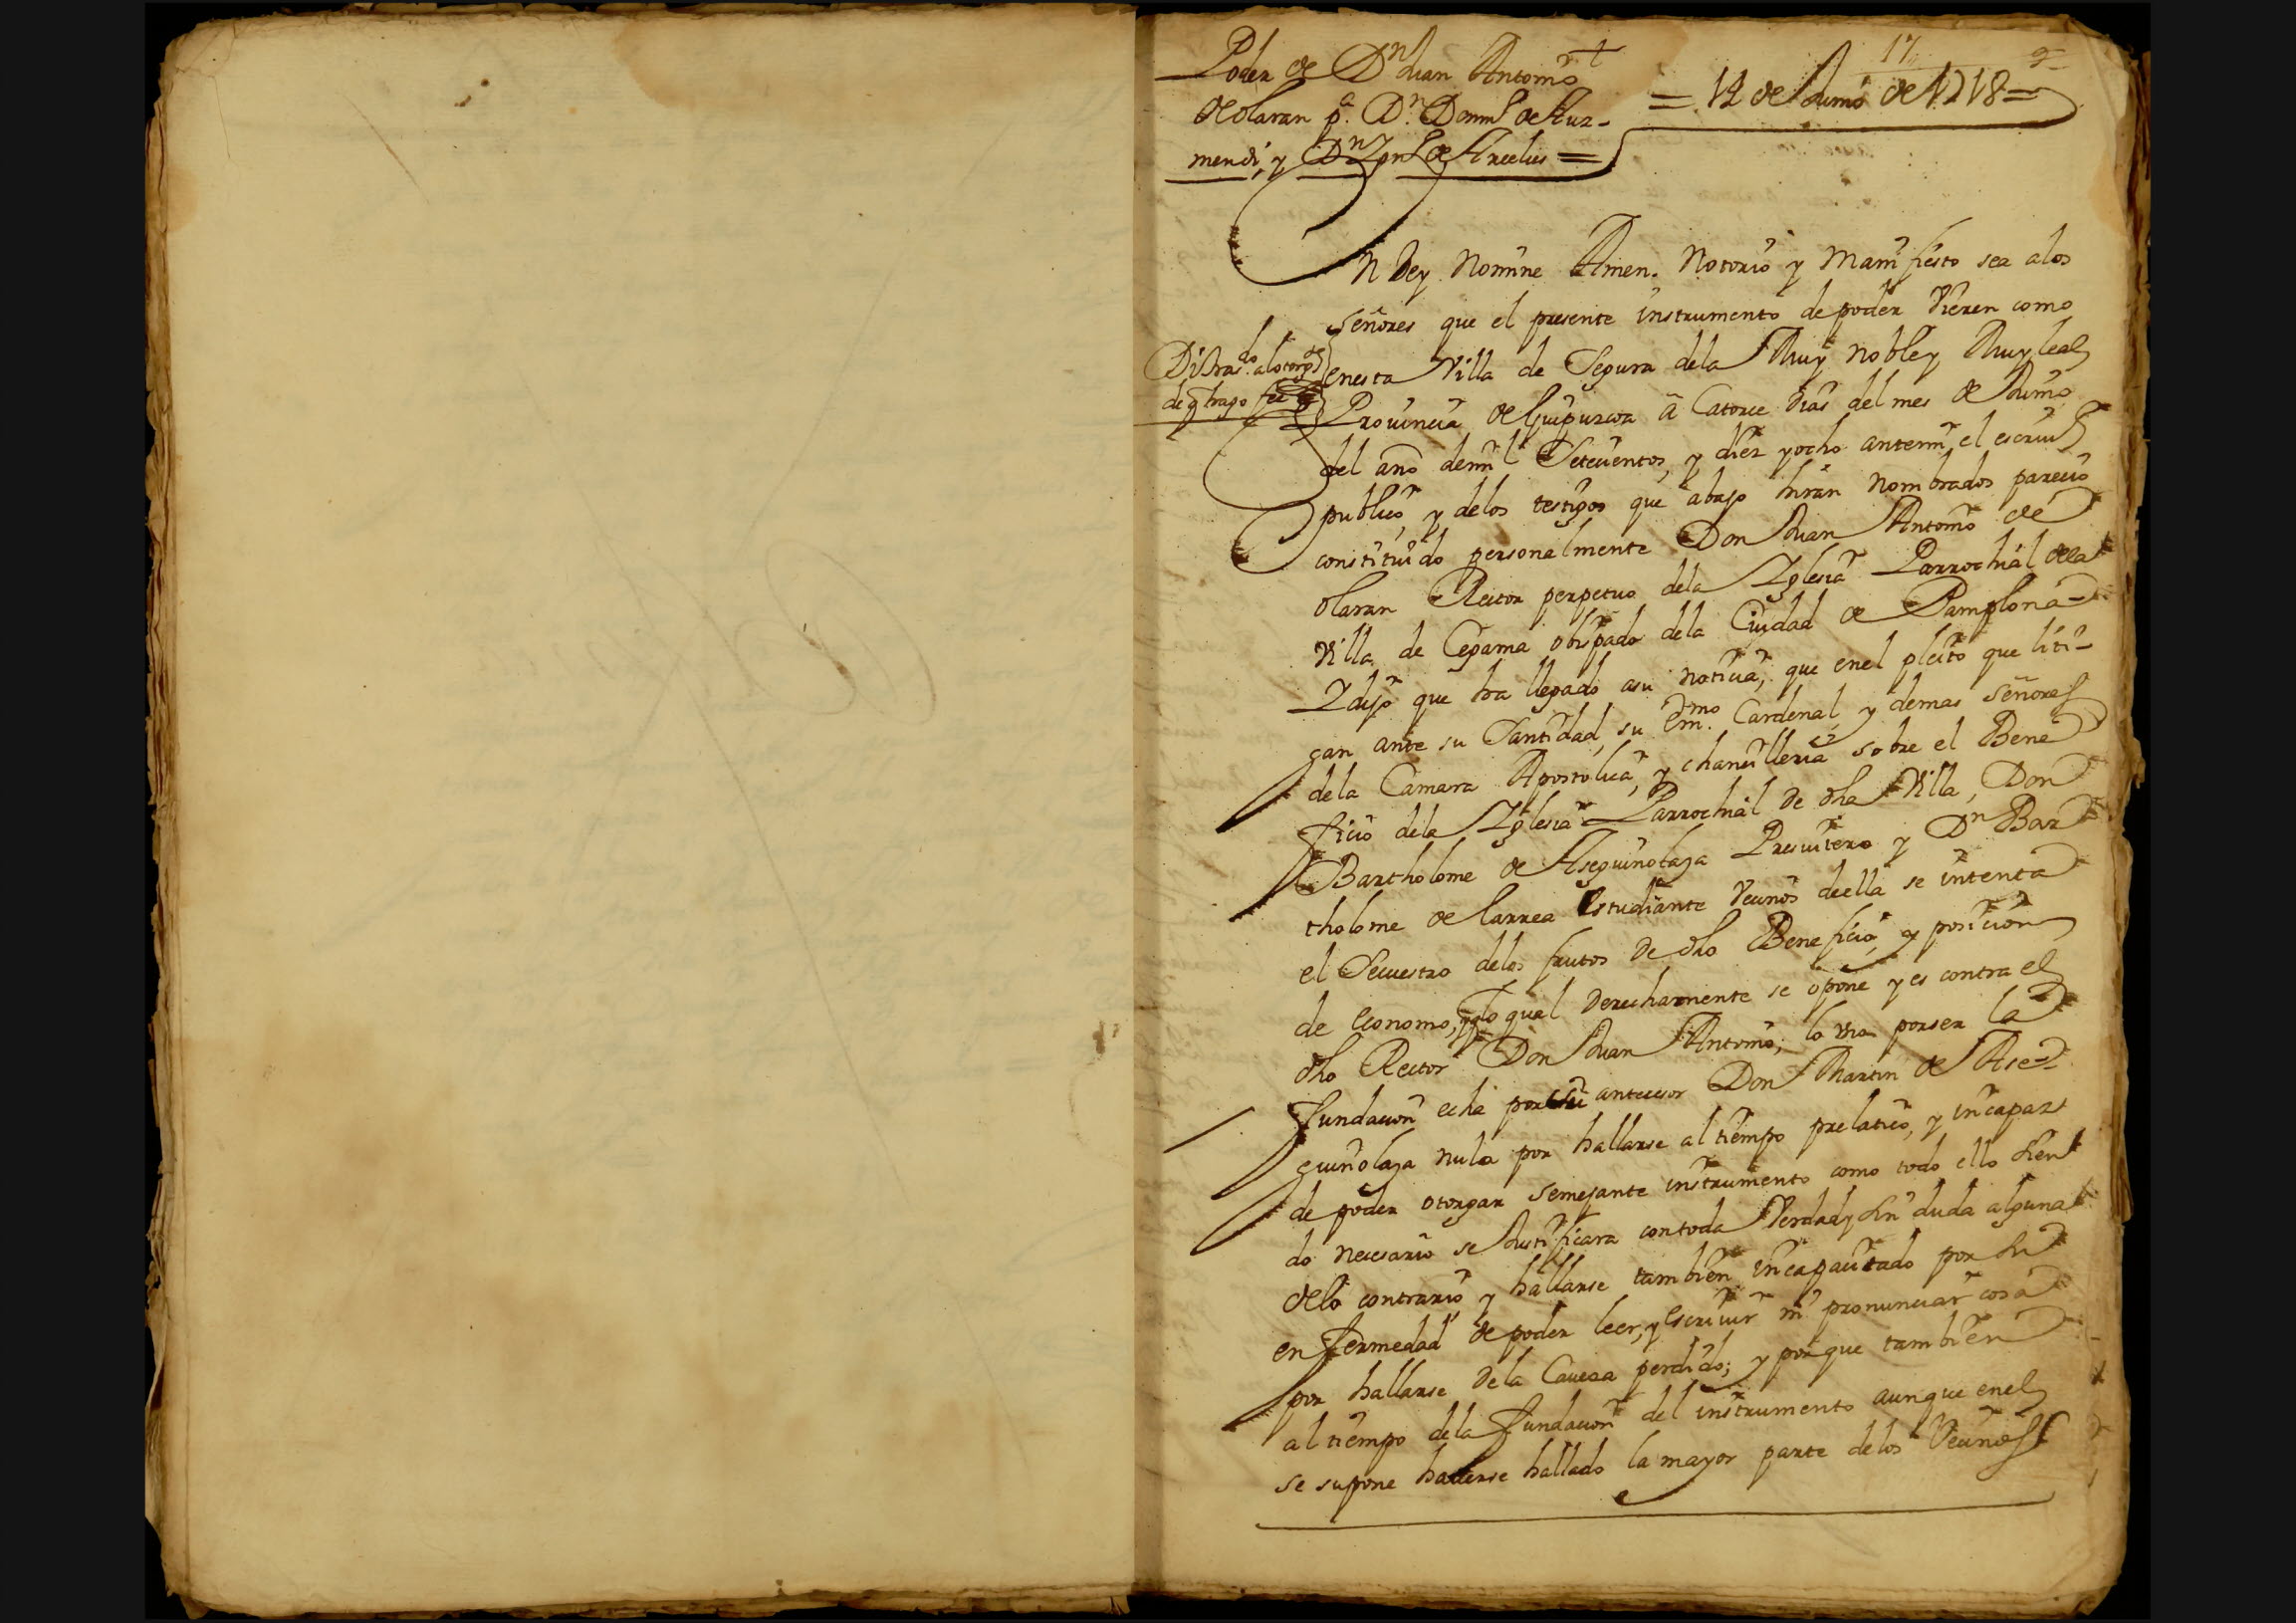 17
Poder de Dn Juan Antonio
de olaran pa. Dn. Domgo de Auz-
mendi, y Dn de Arcelus =
= 14 de Junio de 1718 =
N Dey Nomine Amen. Notorio y Manifiesto sea alos
señores que el presente instrumento de poder Vieren como
enesta Villa de Segura dela Muy noble y Muy leal
Prouincia de Guipuzcoa â Catorce dias del mes de Junio
del año demil Setecientos, y diez yocho antemi el escriuo
publico, y delos testigos que abajo hiran nombrados parecio
constituido personalmente Don Juan Antonio de
olaran Rector perpetuo dela Yglesia Parrochial dela
Villa de Cegama obispado dela Ciudad de Pamplona-
Y dijo que ha llegado asu noticia, que enel pleito que liti-
gan ante su Santidad, su Em.mo Cardenal, y demas señores
dela Camara Apostolica, y chancilleria sobre el Bene
ficio dela Yglesia Parrochial de dha Villa, Don
Bartholome de Aseguinolaza Presuitero y Dn Bar
tholome de Larrea Estudiante Vecinos deella se intenta
el Secuestro delos frutos de dho Beneficio, y posicion
de Economo, lo qual derecharmente se opone yes contra el
dho Rector Don Juan Antonio; lo Uno porser la
fundacion echa por su antecesor Don Martin de Ase-
guinolaza nula por hallarse al tiempo prelatico, y incapaz
de poder otorgar semejante instrumento como todo ello sien
do necesario se Justificara contoda Verdad y sin duda alguna
delo contrario y hallarse tambien incapacitado por su
enfermedad de poder leer, y Escriuir ni pronunciar cosa
por hallarse dela Caueza perdido; y porque tambien
al tiempo dela fundacion del instrumento aunque enel
se supone hauerse hallado la mayor parte delos Vecinos